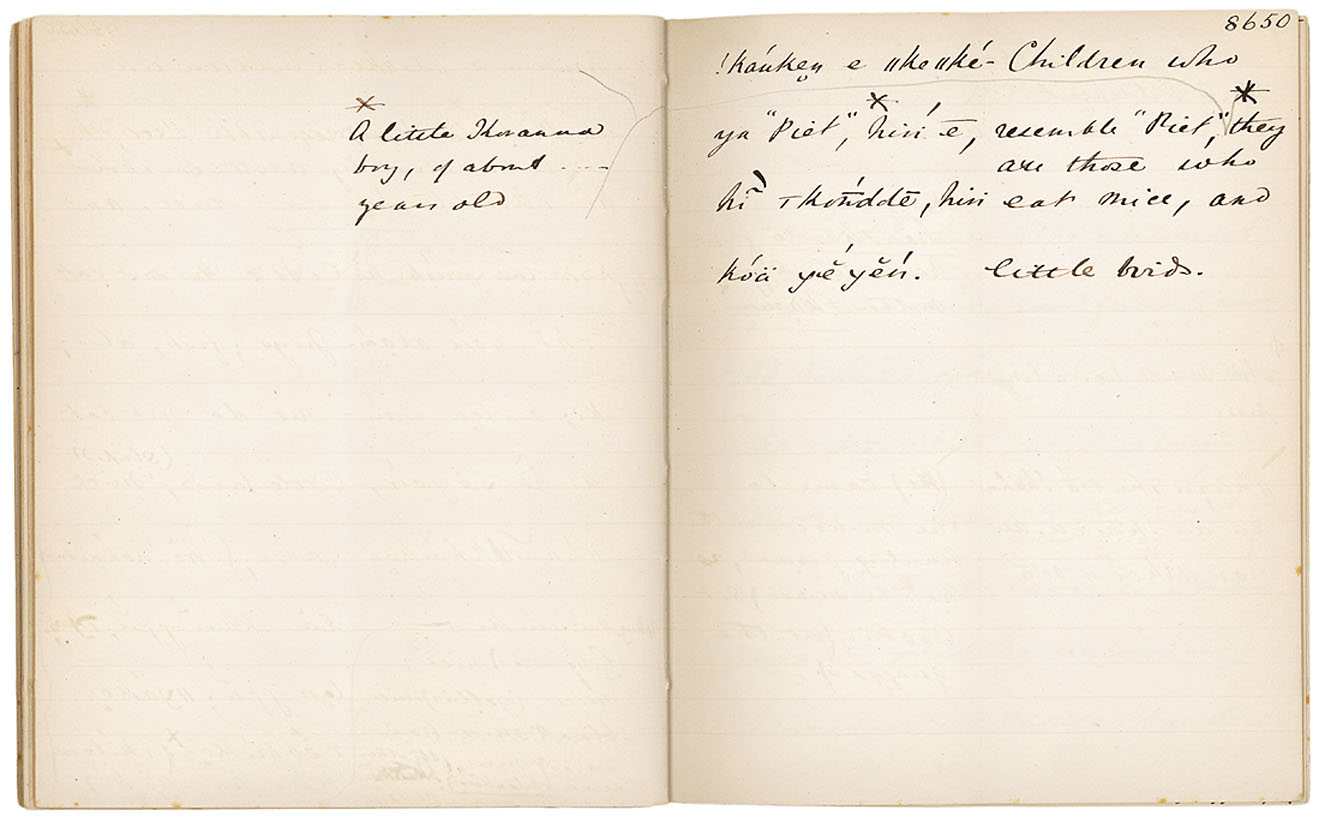 *
A little Koranna
boy, of about ....
years old
8650
!káuken e ǁkeǁké- Children who
ya "Piet", hiń ē, resemble "Piet", they
are those who
hĩ, hiń eat mice, and
kóä yĕ́yĕń. little birds.